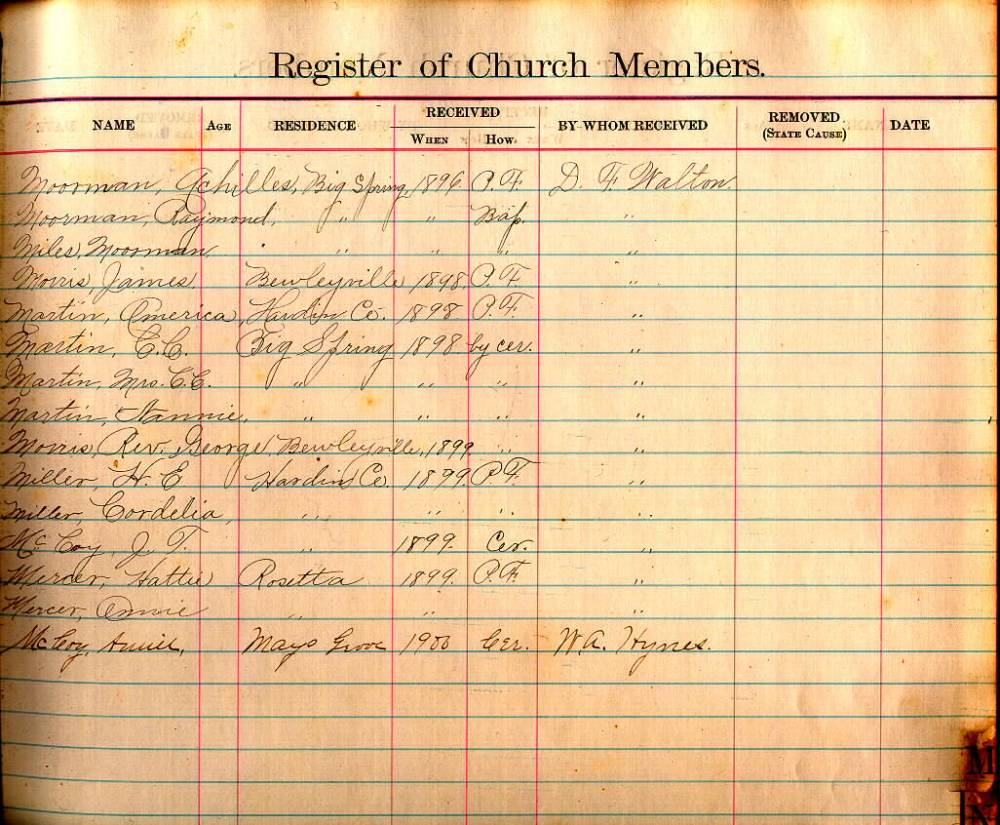 Register of Church Members.
RECEIVED
NAME AGE RESIDENCE WHEN HOW. BY WHOM RECEIVED REMOVED (STATE CAUSE) DATE
Moorman, Achilles, Big Spring, 1896. P.F. D. F. Walton.
Moorman, Raymond, " " Bap. "
Miles, Moorman, " " " "
Morris, James Bewleyville 1898. P.F. "
Martin, America, Hardin Co. 1898 P.F. "
Martin, C.C. Big Spring 1898 by cer. "
Martin, Mrs. C.C. " " " "
Martin, Nannie, " " " "
Morris, Rev. George, Bewleyville, 1899 " "
Miller, H. E Hardin Co. 1899. P.F. "
Miller, Cordelia, " " " "
McCoy, J. T. " 1899. Cer. "
Mercer, Hattie Rosetta 1899. P.F. "
Mercer, Annie " " "
McCoy, Mays Grove 1900 Cer. W.A. Hynes.
M
N